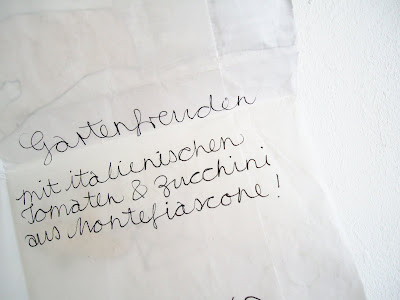 Gartenfreuden
mit italienischen
Tomaten & Zucchini
aus Montefiascone!